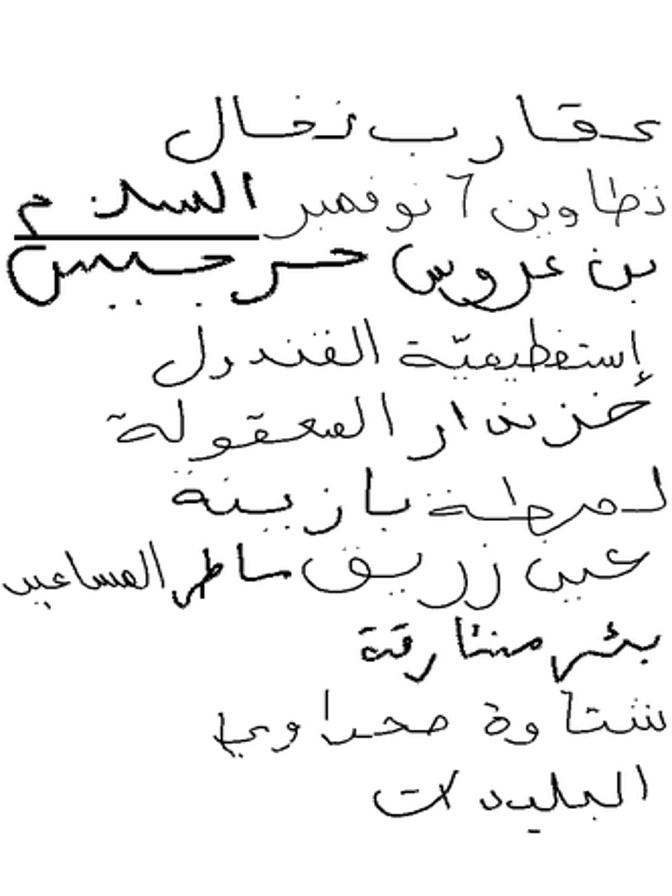 عقارب نخال
تطاوين 7 نوفمبر السلام
بن عروس جرجيس
إستفطيميّة الفندول
خزندار المعقولة
لمرطة بازينة
عين زريق ساطر المساعيد
بئر مشارقة
شتاوة صحراوي
البليدات